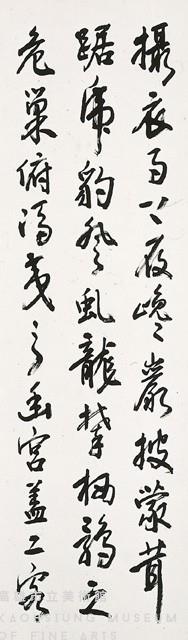 攝衣而上履巉巖披蒙茸
踞虎豹登虬龍攀栖鶻之
危巢俯馮夷之幽宮蓋二客
高雄市立美術館
KAOHSIUNG MUSEUM
OF FINE ARTS